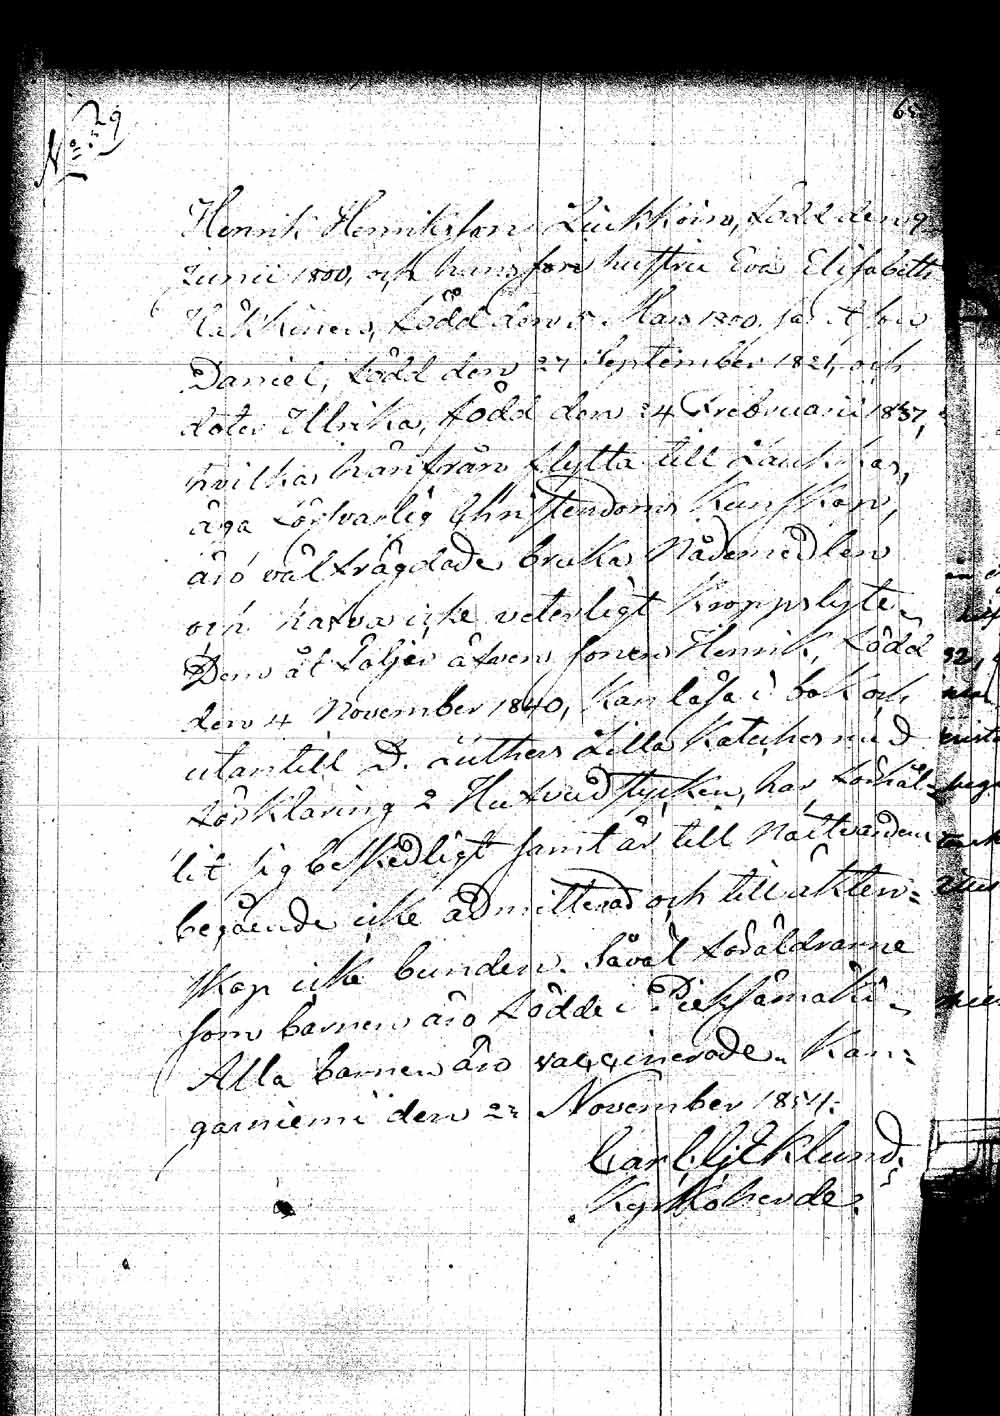 No 29
Henrik Henriksson Liukkoin, född den 9
Junii 1800, och hans hustru Eva Elisabeth
Häkkinen, född den 5 Mars 1800, samt son
Daniel, född den 27 September 1821, och
doter Ulrika, född den 24 Februarii 1837,
hvilka härifrån flytta till
äga försvarlig Christendoms Kunskap,
äro välfrägdade, bruka Nådemedlen
och hafva icke veterligt Kroppslyte.
Dem åt följer äfven sonen Henrik, född
den 4 November 1840, kan läsa i bok och
utantill D. Luthers Lilla Kateches med
förklaring 2 Hufvudstycken, har förhål-
lit sig beskedligt samt är till Nattvardens
begående icke admitterad och till äkten=
skap icke bunden. Såväl föräldrarne
som barnen äro födde i Pieksämäki.
Alla barnen äro vaccinerade. Kan=
gasniemi den November 1854.
Carl Cykoherde.